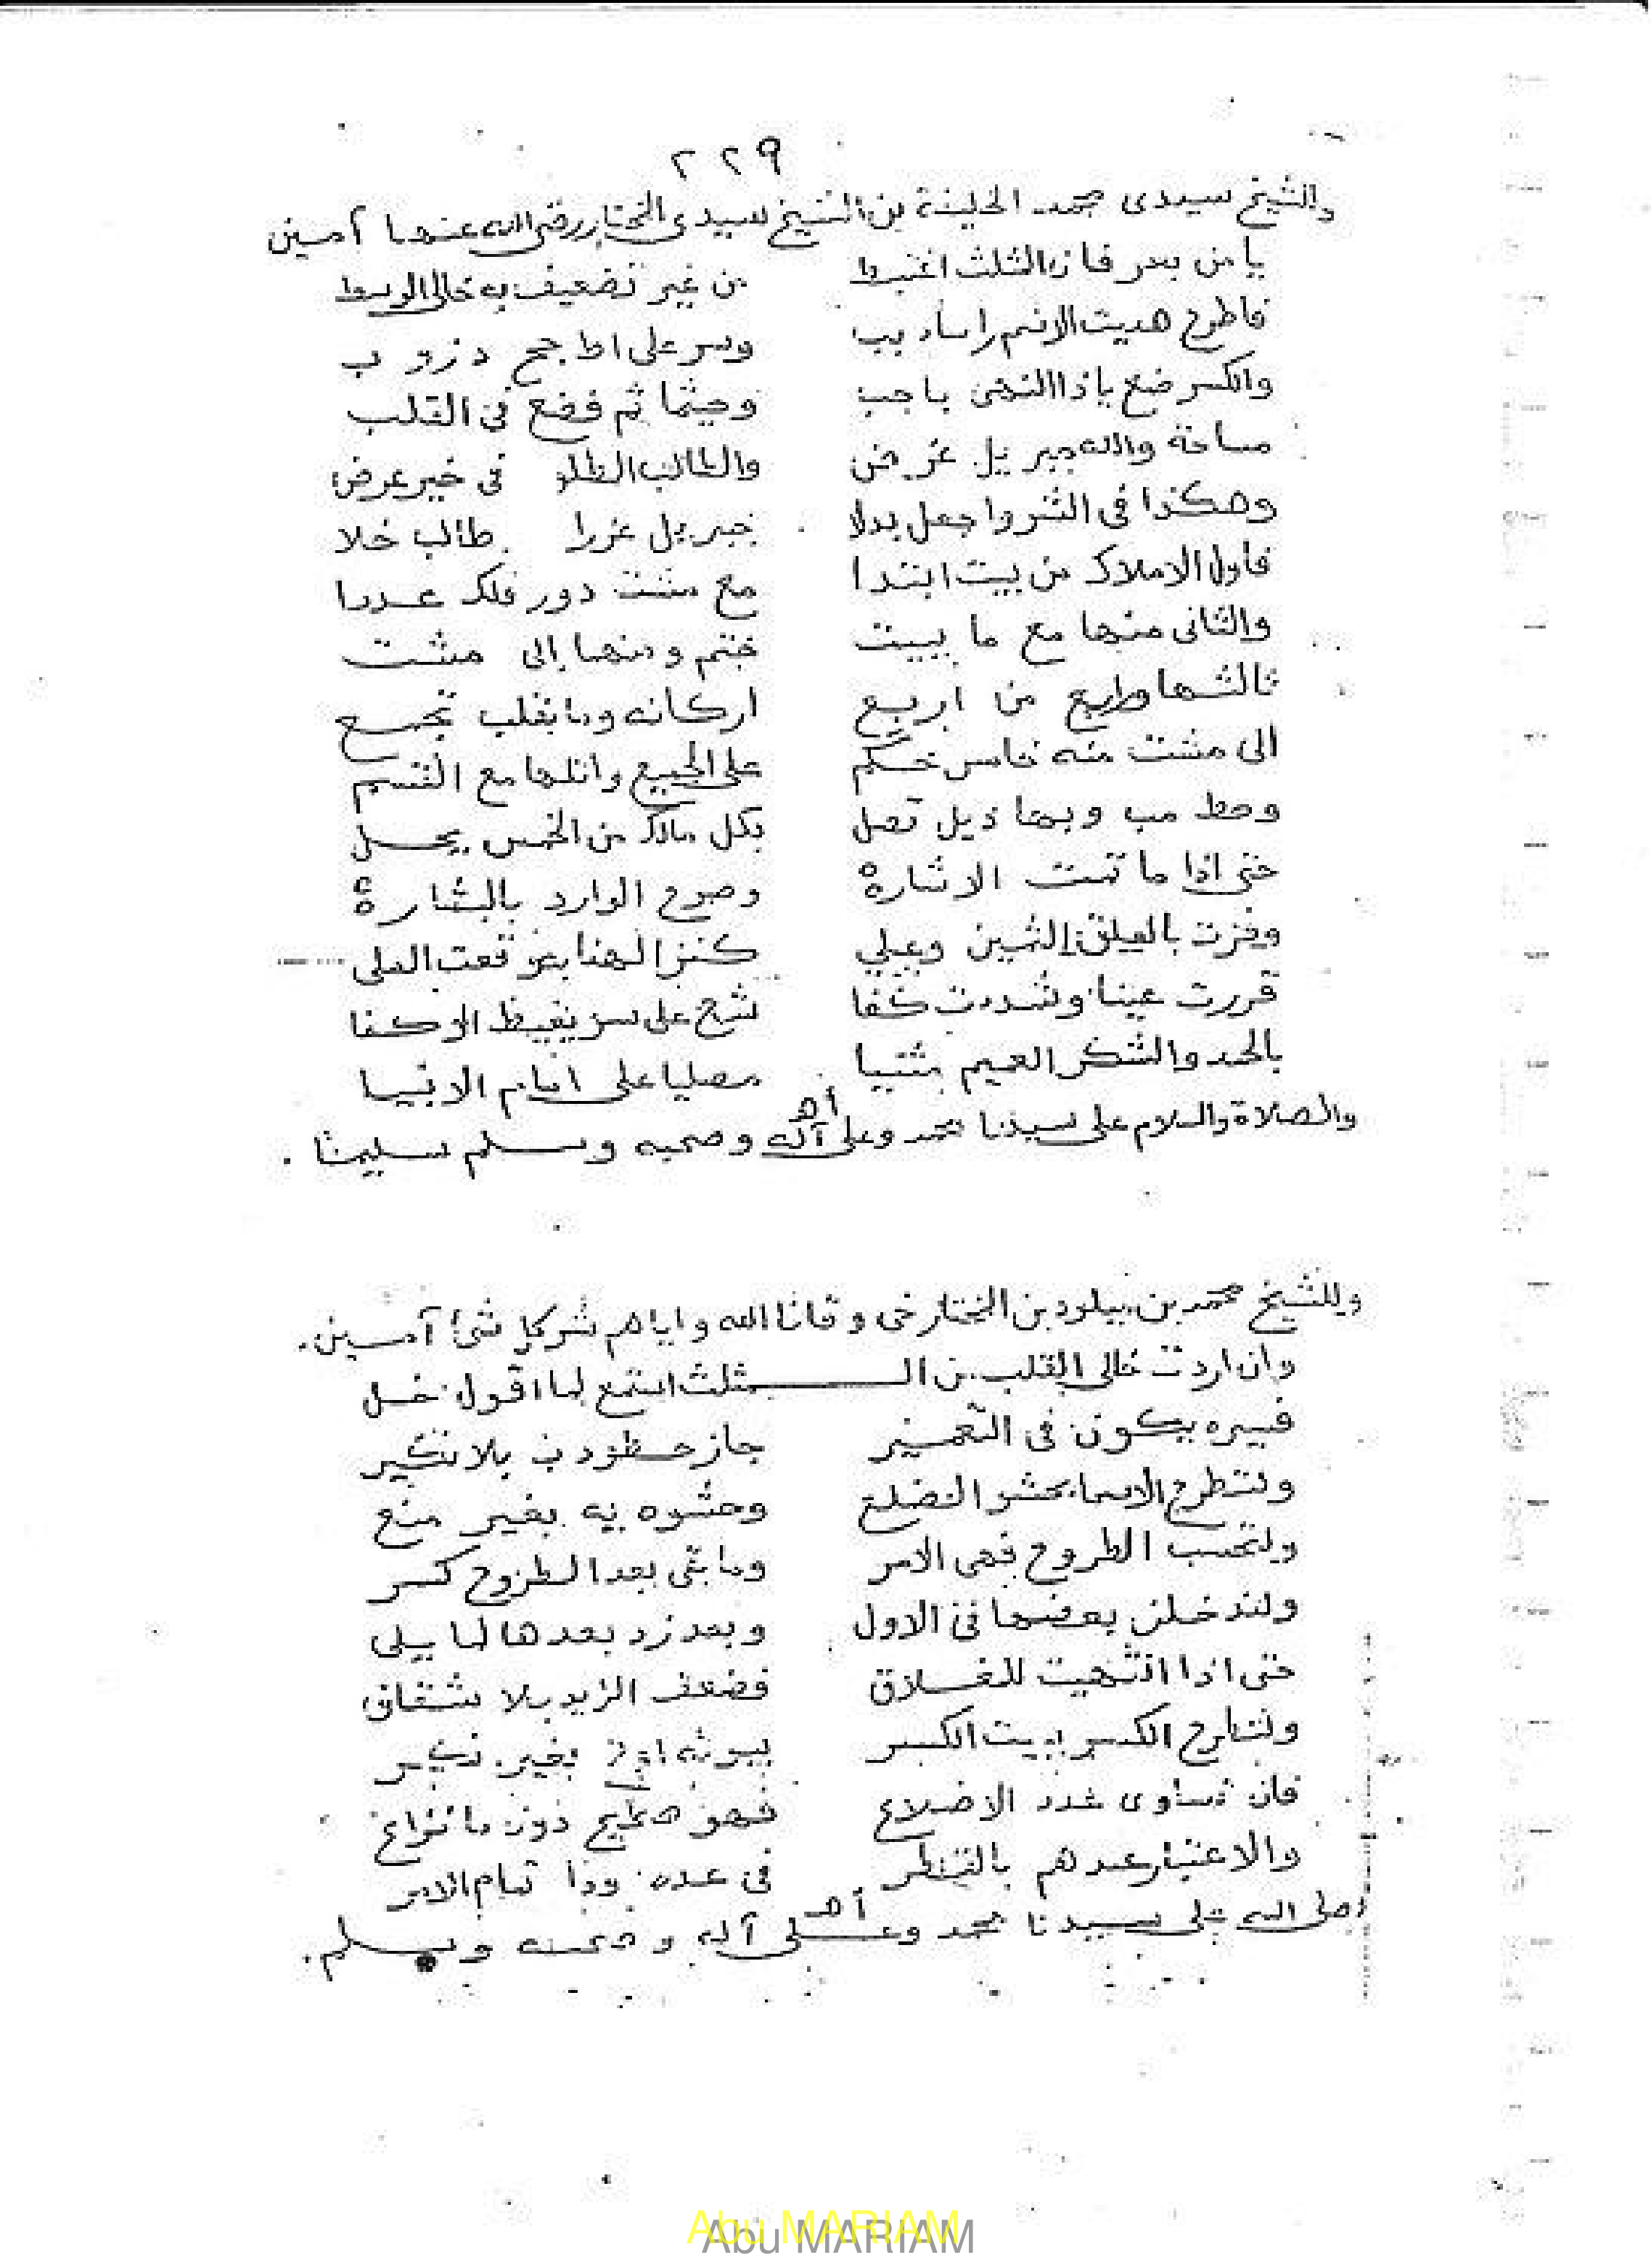 ٢٢٩
والشيخ سيدى محمد الخليفة بن الشيخ سيدى المختار رضى الله عنهما آمين
يا من بسر الثلث اغتبط من غير تضعيف به خالى الوسط
فاطرح هديت الاسم وسر على اط جح د زو ب
والكسر ضع ياذا النهى باجب وحيثما ثم فضع فى القلب
والله جبريل عرض والطالب فى خير عرض
وهكذا فى النثر واجعل بدلا جبريل عزرا طالب خلا
فاول الاملاك من بيت ابتدا مع مثبت دور فلك عددا
والثانى منها مع ما ببيت ختم ومنها إلى مثبت
ثالثها من اربع اركانه وما بقلب تجمع
الى مثبت منه خامس حكم على الجميع واتلها مع القسم
وحط مب وبها ذيل تصل بكل مالك من الخمس يحل
حتى اذا ما تمت الاشارة وصرح الوارد بالبشارة
وفزت بالعلق الثمين كنز الهنا
قررت عينا وشددت كفا شح على سر يغيظ
بالحمد والشكر العميم مثنيا مصليا على امام الانبيا
اهـ
والصلاة والسلام على سيدنا محمد وعلى آله وصحبه وسلم تسليما .
وللشيخ محمد بن بن المختار وقانا الله واياهم شر كل شئ آمين .
وان اردت خالى القلب من المثلث استمع لما اقول خل
يكون فى التعمير جاز بلا نكير
ولتطرح بحشو الضلع وحشوه به بغير منع
ولتحسب الطروح فهى الامر وما بقى بعد الطروح كسر
ولتدخلن بعضها فى الاول وبعد زد بعدها لما يلى
حتى اذا انتهيت للغلاق فضعف المزيد بلا شقاق
ولتطرح الكسر ببيت الكسر بغير نكر
فان تساوى عدد الاضلاع فهو صحيح دون ما نزاع
والاعتبار عندهم بالقطر فى عدد وذا تمام الامر
اهـ
وصلى الله على سيدنا محمد وعلى آله وصحبه وسلم .
Abu MARIAM